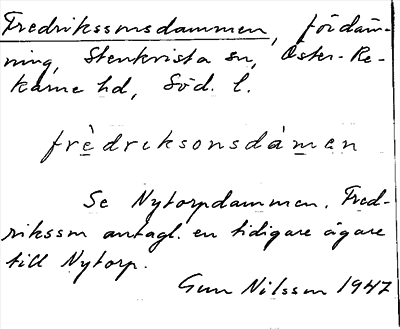 Fredrikssonsdammen, fördäm-
ning, Stenkvista sn, Öster-Re-
karne hd, Söd. l.
frèdreksonsdámen
Se Nytorpdammen. Fred-
riksson antagl. en tidigare ägare
till Nytorp.
Gun Nilsson 1947